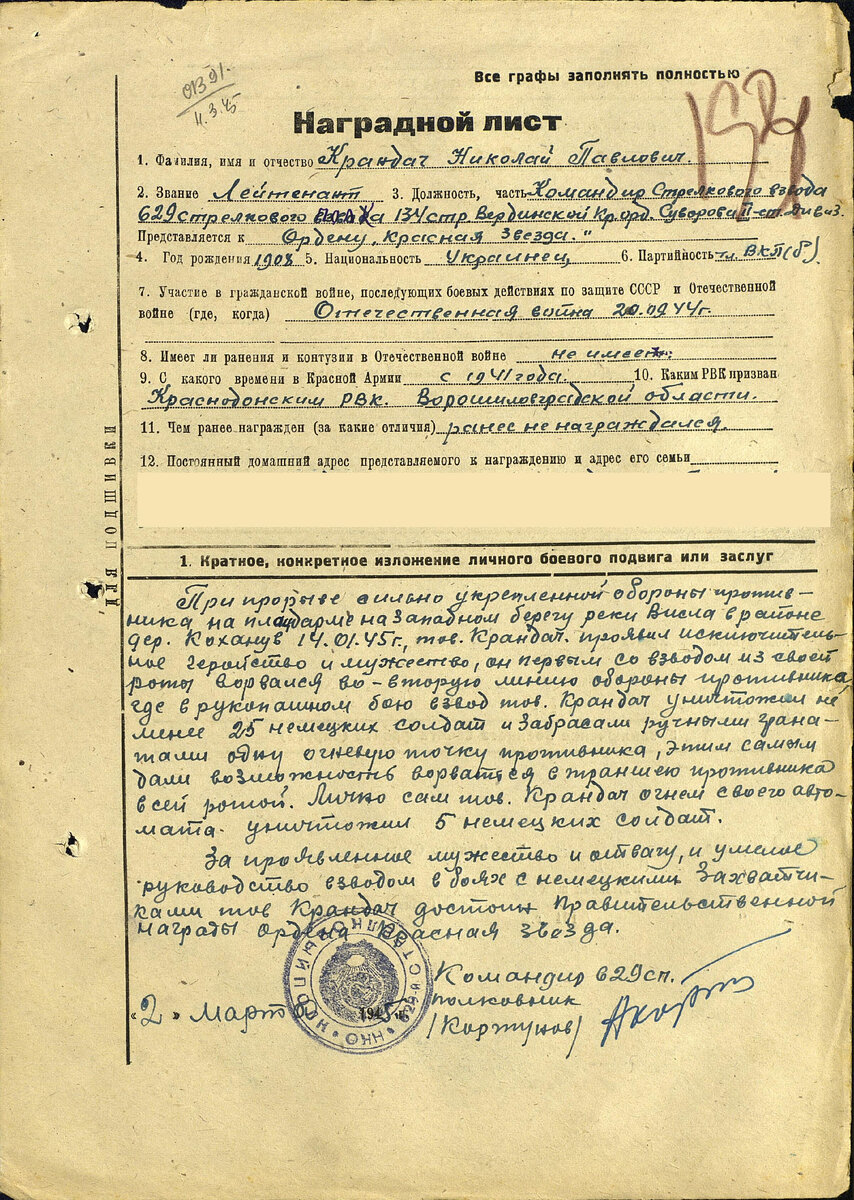 ОВ 91.
11.3.45
Все графы заполнять полностью
Наградной лист
1. Фамилия, имя и отчество Крандач Николай Павлович.
2. Звание Лейтенант 3. Должность, часть Командир Стрелкового взвода
629 стрелкового полка 134 стр. Вердинской Кр. орд. Суворова II-ст. дивиз.
Представляется к Ордену „Красная Звезда."
4. Год рождения 1908 5. Национальность Украинец 6. Партийность чл. ВКП(б)
7. Участие в гражданской войне, последующих боевых действиях по защите СССР и Отечественной
войне (где, когда) Отечественная война 20.09.44г.
8. Имеет ли ранения и контузии в Отечественной войне не имеет.
9. С какого времени в Красной Армии с 1941 года. 10. Каким РВК призван
Краснодонским РВК. Ворошиловградской области.
11. Чем ранее награжден (за какие отличия) ранее не награждался.
12. Постоянный домашний адрес представляемого к награждению и адрес его семьи
ДЛЯ ПОДШИВКИ
1. Краткое, конкретное изложение личного боевого подвига или заслуг
При прорыве сильно укрепленной обороны против-
ника на плацдарме на Западном берегу реки Висла в районе
дер. Коханув 14.01.45г., тов. Крандач проявил исключитель-
ное геройство и мужество, он первым со взводом из своей
роты ворвался во-вторую линию обороны противника,
где в рукопашном бою взвод тов. Крандач уничтожил не
менее 25 немецких солдат и забрасали ручными грана-
тами одну огневую точку противника, этим самым
дали возможность ворватся в траншею противника
всей ротой. Лично сам тов. Крандач огнем своего авто-
мата уничтожил 5 немецких солдат.
За проявленное мужество и отвагу, и умелое
руководство взводом в боях с немецкими Захватчи-
ками тов Крандач достоин Правительственной
награды Ордена Красная звезда.
Командир 629 сп.
полковник
/Кортунов/
"2" Март 1945 г.
629-й СТРЕЛКОВЫЙ ПОЛК НКО